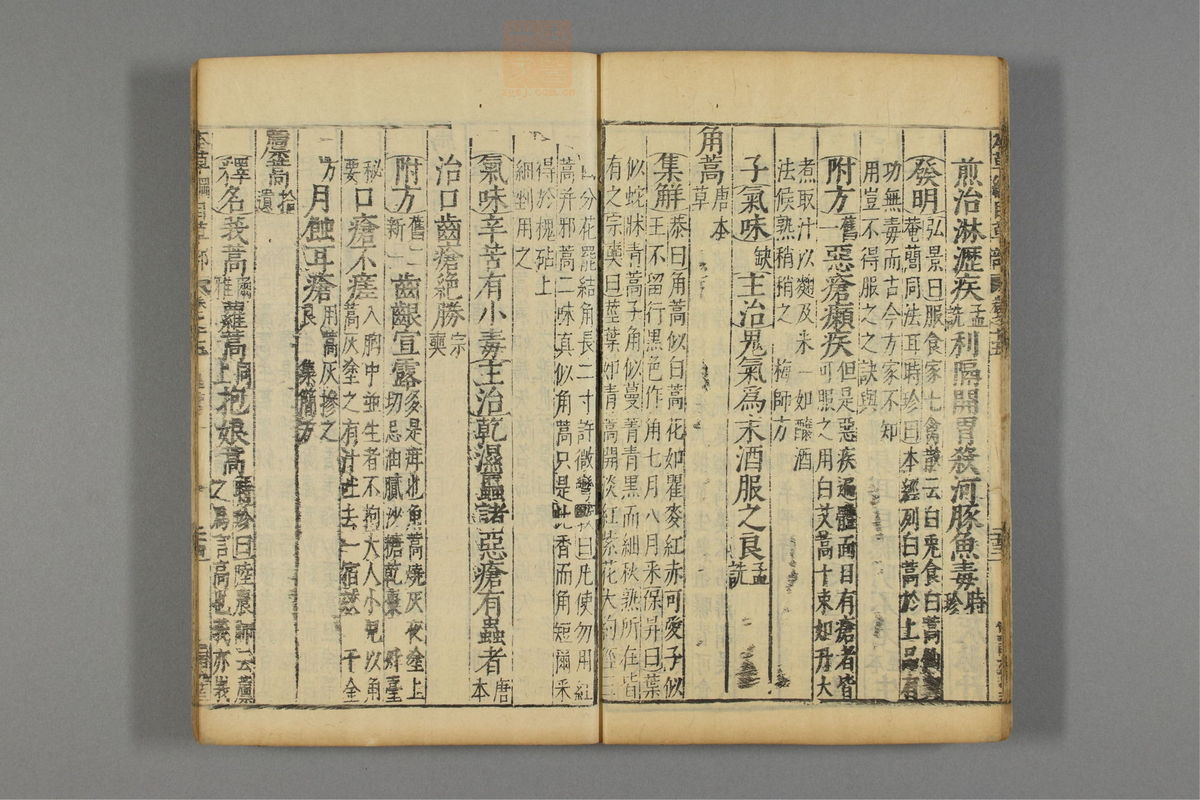 煎治淋瀝疾孟詵利膈開胃殺河豚魚毒時珍
發明弘景曰服食家七禽散云白兔食白蒿仙與
菴䕡同法耳時珍曰本經列白蒿於上品有
功無毒而古今方家不知
用豈不得服之之訣與
附方舊一惡瘡癩疾但是惡疾遍體面目有瘡者皆
可服之用白艾蒿十束如升大
煮取汁以麴及米一如釀酒
法候熟稍稍之 梅師方
子氣味缺主治鬼氣爲末酒服之良孟詵
角蒿唐本草
集解恭曰角蒿似白蒿花如瞿麥紅赤可愛子似
王不留行黑色作角七月八月采保昇曰葉
似蛇牀青蒿子角似蔓菁青黑而細秋熟所在皆
有之宗奭曰莖葉如青蒿開淡紅紫花大約徑三
四分花罷結角長二寸許微彎斆曰凡使勿用紅
蒿并邪蒿二味真似角蒿只是此香而角短爾采
得於槐砧上
細剉用之
氣味辛苦有小毒主治乾濕䘌諸惡瘡有蟲者唐本
治口齒瘡絶勝宗奭
附方舊一新二齒齦宣露多是疳也角蒿燒灰夜塗上
切忌油膩沙糖乾棗 外臺
秘要口瘡不瘥入胸中並生者不拘大人小兒以角
蒿灰塗之有汁吐去一宿效 千金
方月蝕耳瘡用蒿灰摻之
良 集簡方
䕲蒿拾遺
釋名莪蒿爾雅蘿蒿上同抱娘蒿時珍曰陸農師云䕲
之爲言高也莪亦峩